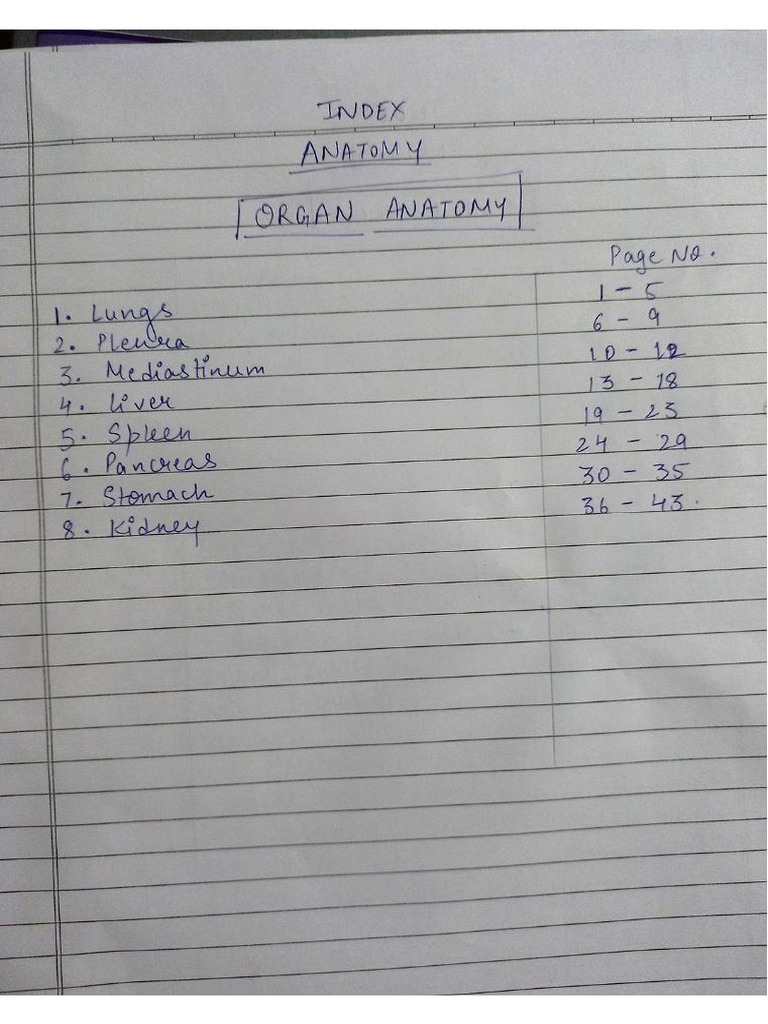 INDEX
ANATOMY
ORGAN ANATOMY
Page No.
1. Lungs 1 - 5
2. Pleura 6 - 9
3. Mediastinum 10 - 12
4. Liver 13 - 18
5. Spleen 19 - 23
6. Pancreas 24 - 29
7. Stomach 30 - 35
8. Kidney 36 - 43.